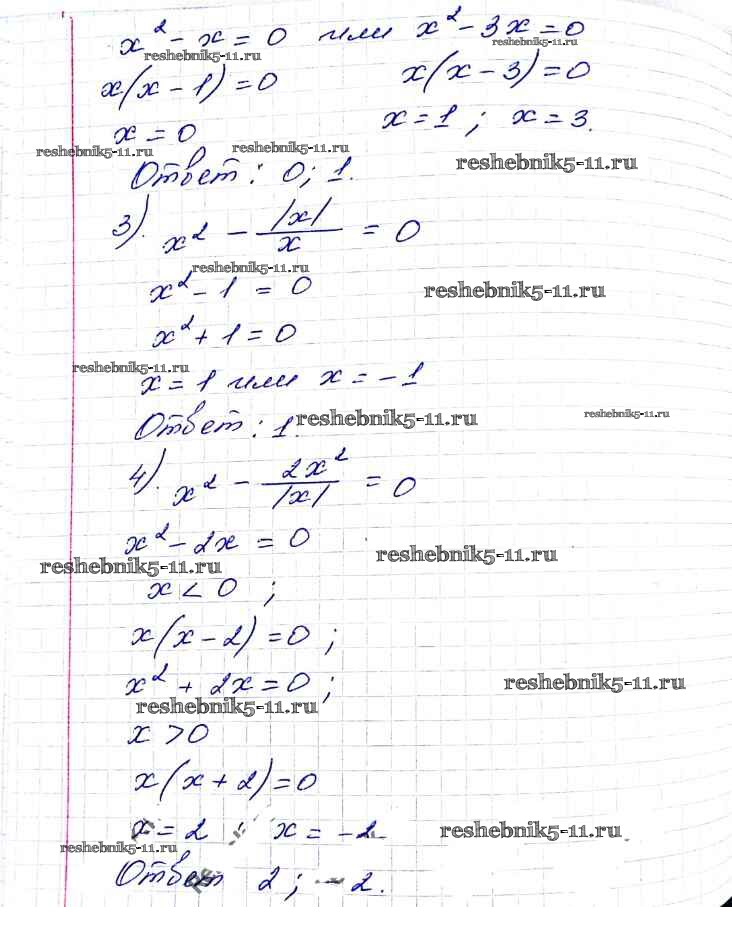 x² - x = 0 или x² - 3x = 0
reshebnik5-11.ru reshebnik5-11.ru
x(x - 1) = 0 x(x - 3) = 0
x = 0 x = 1 ; x = 3.
reshebnik5-11.ru reshebnik5-11.ru reshebnik5-11.ru
Ответ: 0; 1.
3). x² - |x|/x = 0
reshebnik5-11.ru
x² - 1 = 0 reshebnik5-11.ru
x² + 1 = 0
reshebnik5-11.ru
x = 1 или x = -1
Ответ: 1. reshebnik5-11.ru reshebnik5-11.ru
4). x² - 2x²/|x| = 0
x² - 2x = 0 reshebnik5-11.ru
reshebnik5-11.ru
x < 0 ;
x(x - 2) = 0 ;
x² + 2x = 0 ; reshebnik5-11.ru
reshebnik5-11.ru
x > 0
x(x + 2) = 0
x = 2 ; x = -2 reshebnik5-11.ru
reshebnik5-11.ru
Ответ 2 ; -2.